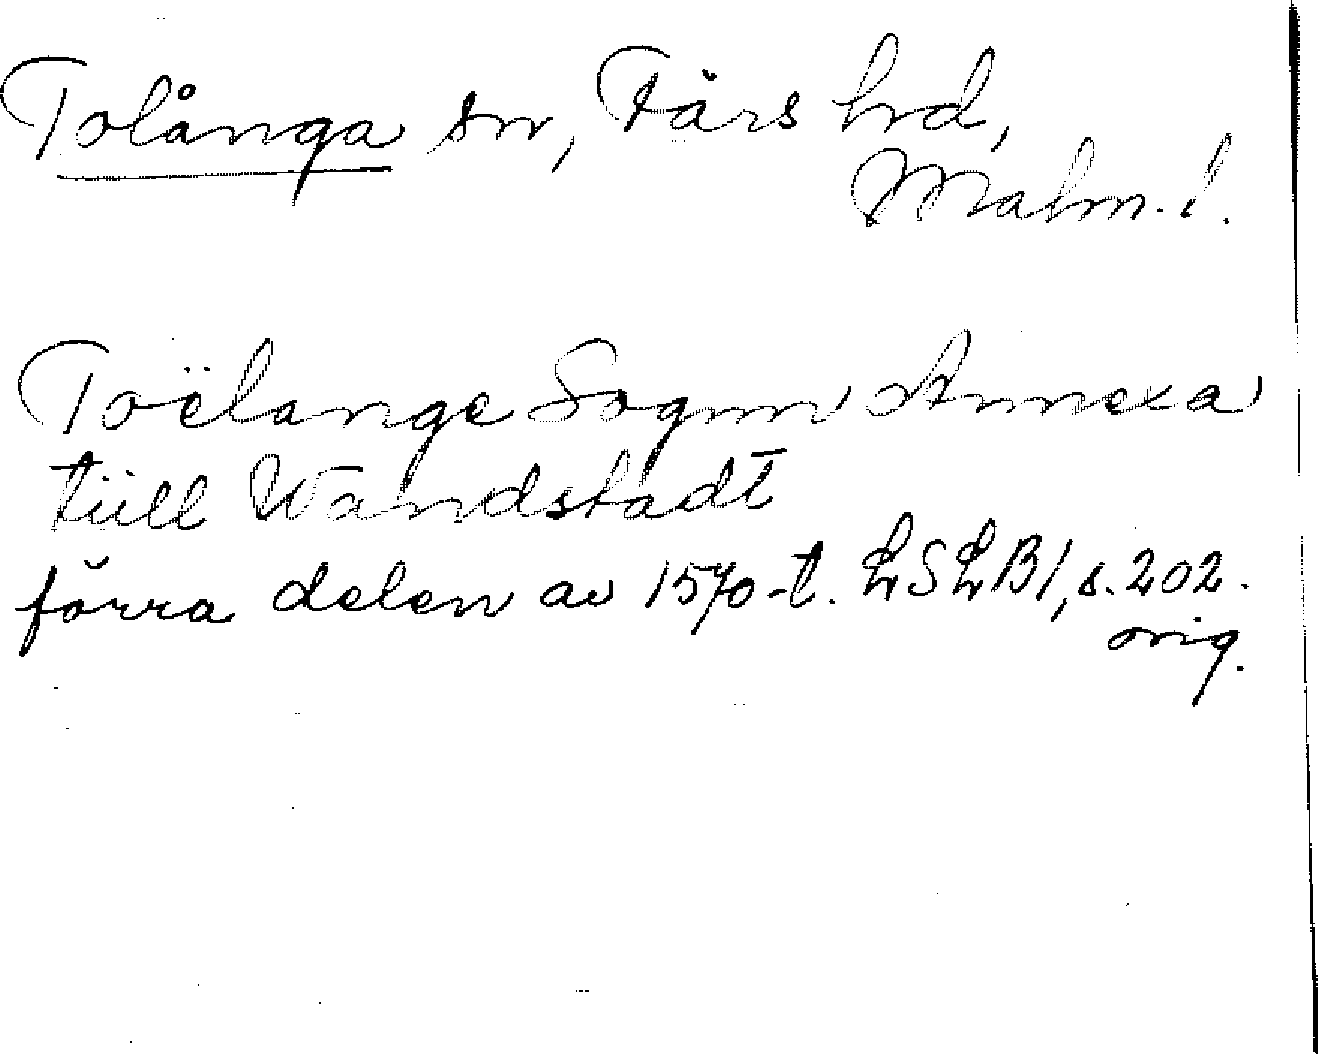 Tolånga sn, Färs hrd,
Malm. l.
Toëlange Sognn Annexa
tüll Wandstadt
förra delen av 1570-t. LSLB1, s. 202.
orig.